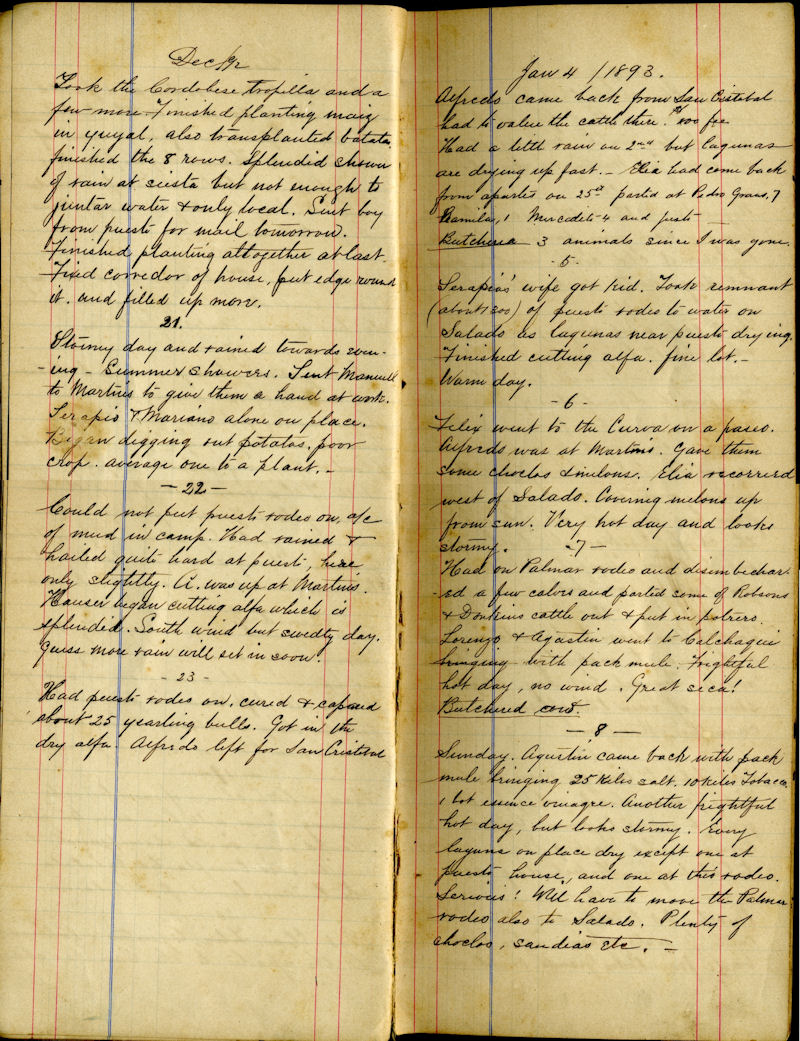 Decbr
Took the Cordobese tropilla and a
few more. Finished planting maiz
in yuyal, also transplanted batatas
finished the 8 rows. Splendid shower
of rain at siesta but not enough to
juntar water & only local. Sent boy
from puesto for mail tomorrow.
Finished planting altogether at last.
Fixed corredor of house, put edge round
it. and filled up more.
21.
Stormy day and rained towards even-
-ing - Summer showers. Sent Manuel
to Martins to give them a hand at work.
Serapio & Mariano alone on place.
Began digging out potatos, poor
crop. average one to a plant. -
- 22 -
Could not put puesto rodeo on, a/c
of mud in camp. Had rained &
hailed quite hard at puesto, here
only slightly. A. was up at Martins.
Hauser began cutting alfa which is
splendid. South wind but sweaty day.
Guess more rain will set in soon.
- 23 -
Had puesto rodeo on, cured &
about 25 yearling bulls. Got in the
dry alfa. Alfredo left for San Cristobal
Jan 4 / 1893.
Alfredo came back from San Cristobal
had to value the cattle there.
Had a little rain on 2nd but lagunas
are drying up fast. - Elia had come back
from apartes on 25th parted at Pedro 7
Ramila, 1 Mercedes 4 and
Butchered 3 animals since I was gone.
- 5 -
Serapio's wife got kid. Took remnant
(about 1300) of puesto rodeo to water on
Salado as lagunas near puesto drying.
Finished cutting alfa. fine lot. -
Warm day.
- 6 -
Felix went to the Curva on a paseo.
Alfredo was at Martins. Gave them
some choclos & melons. Elia recorried
west of Salado. Covering melons up
from sun. Very hot day and looks
stormy.
- 7 -
Had on Palmar rodeo and disembechar-
-ed a few calves and parted some of Robsons
& Donkins cattle out & put in potrero.
Lorenzo & Agustin went to Calchaqui
bringing with pack mule. Frightful
hot day, no wind. Great seca!
Butchered cow.
- 8 -
Sunday. Agustin came back with pack
mule bringing 25 kilos salt, 10 kilos Tobacco,
1 bot essence vinagre. Another frightful
hot day, but looks stormy. Every
laguna on place dry except one at
puesto house, and one at this rodeo.
Serious! Will have to move the Palmar
rodeo also to Salado. Plenty of
choclos, sandias etc. -